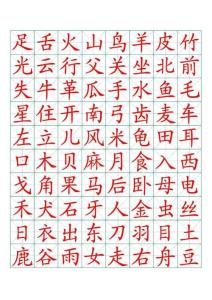 足舌火山鸟羊皮竹
光云行父关坐北前
失牛革瓜手水鱼毛
星住开南弓齿麦车
左立儿风米龟田耳
口木贝麻月食入西
戈角果马后卧母电
禾犬石牙人金虫丝
日衣出东刀羽目土
鹿谷雨女走右舟豆